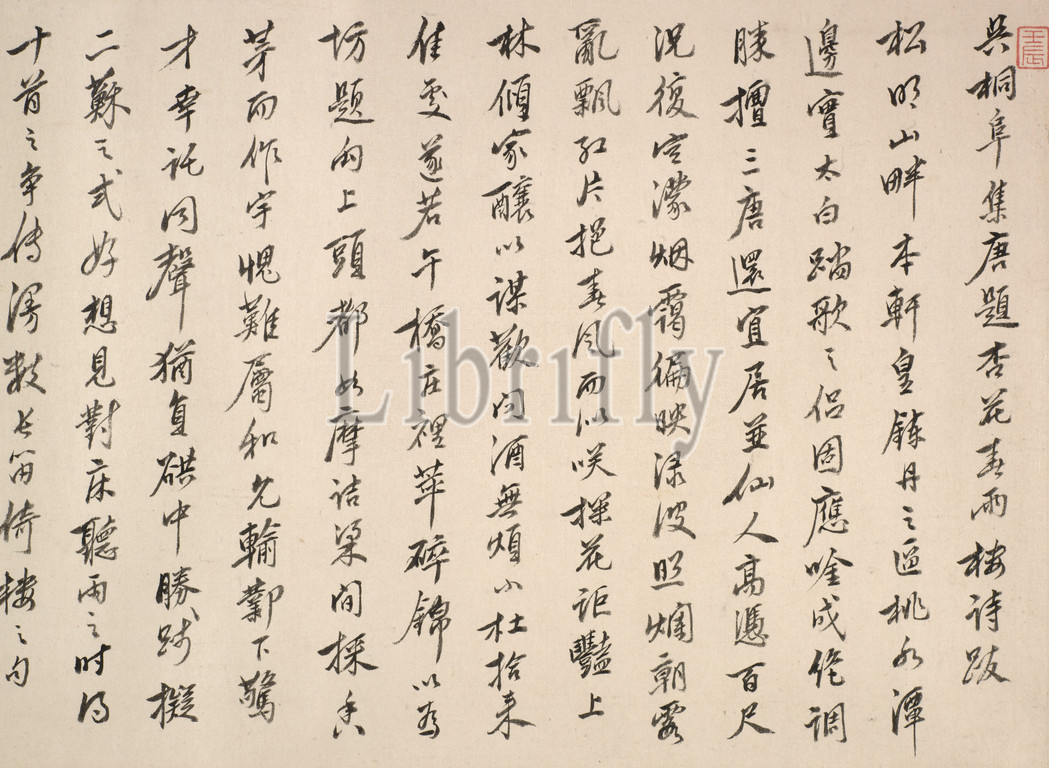 吳桐阜集唐題杏花春雨樓詩跋
松明山畔本軒皇鍊丹之區桃水潭
邊實太白踏歌之侶固應唫成絕調
勝擅三唐還宜居並仙人高憑百尺
況復空濛烟靄徧映淥波照爛朝霞
亂飄紅片挹春風而似咲探花詎豔上
林傾家釀以謀歡問酒無煩小杜拾來
佳叟遂若午橋莊裡萃碎錦以為
坊題向上頭都如摩詰梁間採香
茅而作宇愧難屬和尤輸鄴下驚
才幸託同聲猶負礙中勝踐擬
二蘇之式好想見對床聽雨之時得
十首之爭傳漫數長笛倚樓之句
壬辰
Librifly